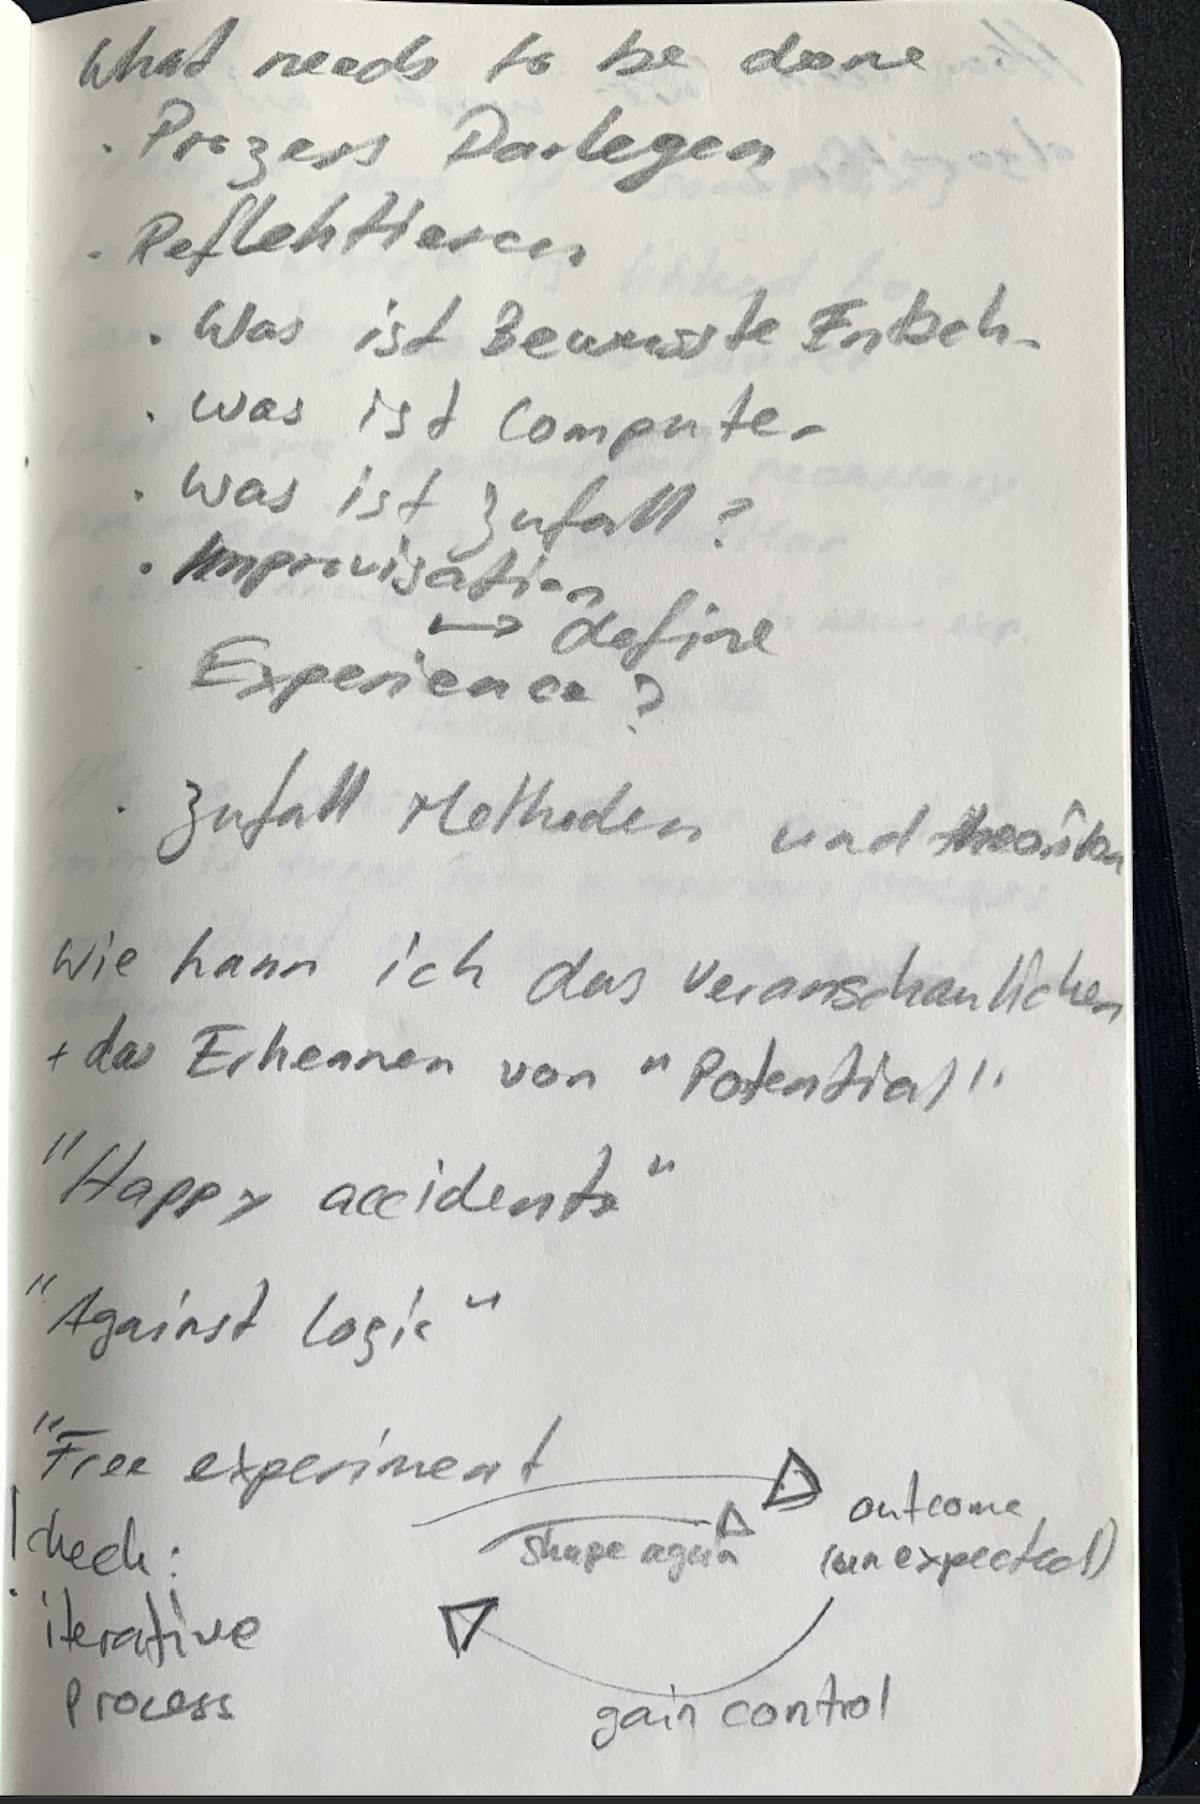 What needs to be done
· Prozess Darlegen
· Reflektieren
· Was ist Bewusste Entsch-
· Was ist Computer
· Was ist Zufall?
· Improvisation
↔ define
Experience?
· Zufall Methoden und theorien
Wie kann ich das veranschaulichen
+ das Erkennen von "Potential"
"Happy accidents"
"Against logic"
"Free experiment
outcome
(unexpected)
shape again
! check:
iterative
process
gain control